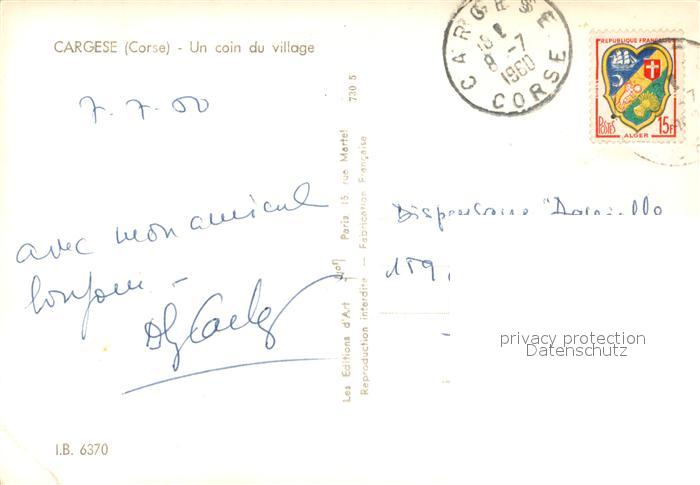 CARGESE (Corse) - Un coin du village
7.7.60
avec mon amical
bonjour -
I.B. 6370
Les Editions d'Art Paris, 15, rue Martel
Reproduction interdite — Fabrication Française
730 5
CARGESE
8 -7
1960
CORSE
REPUBLIQUE FRANÇAISE
POSTES
15F
ALGER
Dispensaire
privacy protection
Datenschutz